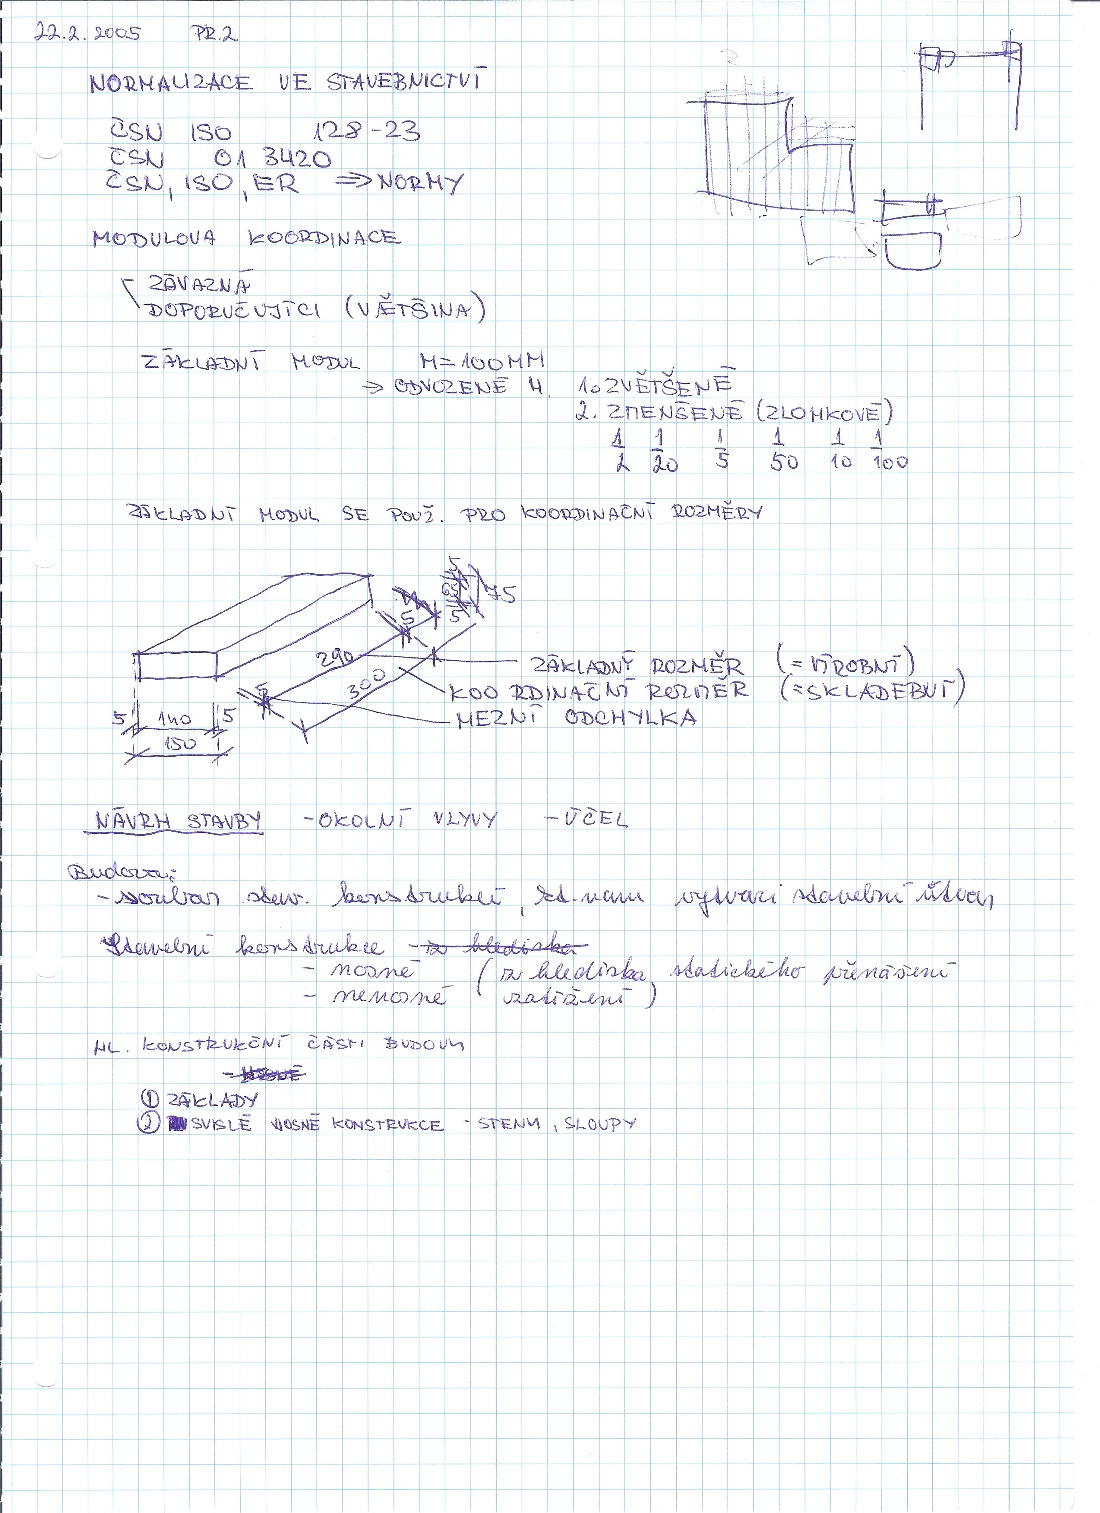 22.2.2005 PR.2
NORMALIZACE VE STAVEBNICTVÍ
ČSN ISO 128-23
ČSN 01 3420
ČSN, ISO, ER ⇒ NORMY
MODULOVA KOORDINACE
ZÁVAZNÁ
DOPORUČUJÍCI (VĚTŠINA)
ZÁKLADNÍ MODUL M=100MM
⇒ ODVOZENÉ M. 1. ZVĚTŠENÉ
2. ZMENŠENÉ (ZLOMKOVÉ)
1/2 1/20 1/5 1/50 1/10 1/100
ZÁKLADNÍ MODUL SE POUŽ. PRO KOORDINAČNÍ ROZMĚRY
5 5 75
5
290 ZÁKLADNÝ ROZMĚR (=VÍROBNÍ)
300 KOORDINAČNÍ ROZMĚR (=SKLADEBUÍ)
5 140 5 5 MEZNÍ ODCHYLKA
150
NÁVRH STAVBY - OKOLNÍ VLYVY - ÚČEL
Budova:
- soubor stav. konstrukcí, kt. nam vytvari stavební útvar
Stavební konstrukce - z hlediska
- nosné (z hlediska statického přenášení
- nenosné zatížení)
HL. KONSTRUKČNÍ ČÁSTI BUDOVY
① ZÁKLADY
② SVISLÉ NOSNÉ KONSTRUKCE - STENY, SLOUPY